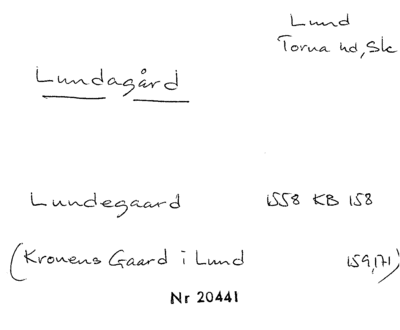 Lund
Torna hd, Sk
Lundagård
Lundegaard 1558 KB 158
(Kronens Gaard i Lund 159, 171)
Nr 20441